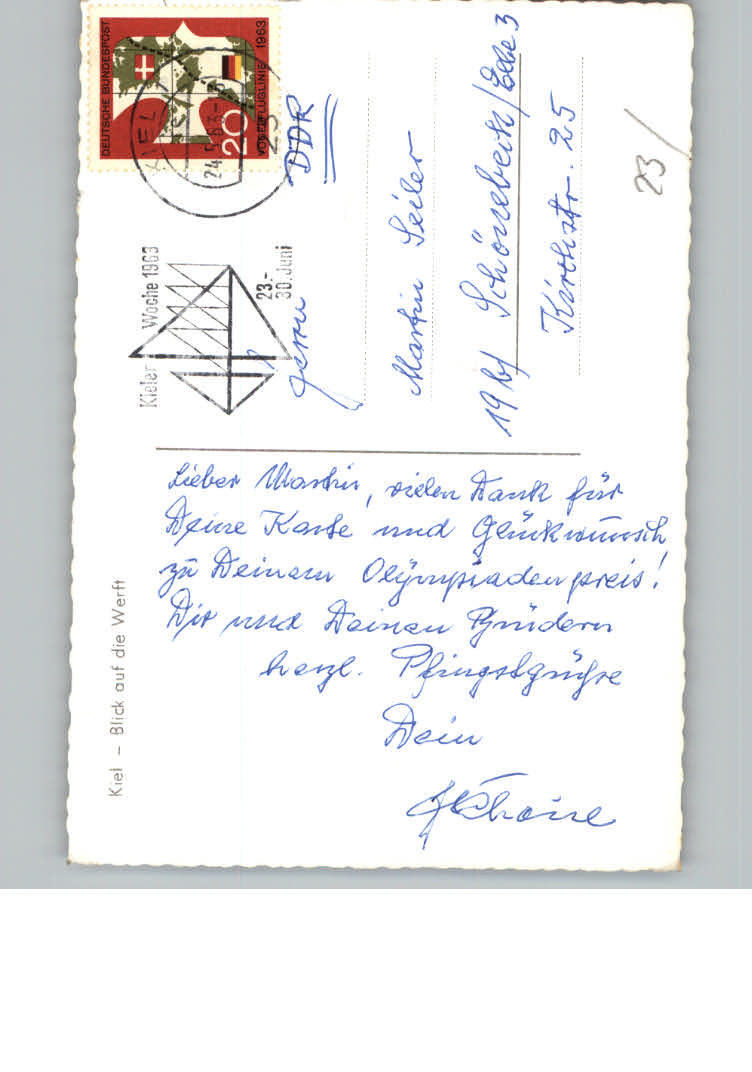 DEUTSCHE BUNDESPOST
20
VOGELFLUGLINIE 1963
KIEL
24.5.63
23
Kieler Woche 1963
23.-
30. Juni
DDR
Herrn
Martin Seiler
19bf Schönebeck/Elbe 3
Kirchstr. 25
23/
Lieber Martin, vielen Dank für
Deine Karte und Glückwunsch
zu Deinem Olympiadenpreis!
Dir und Deinen Brüdern
herzl. Pfingstgrüße
Dein
Kiel – Blick auf die Werft